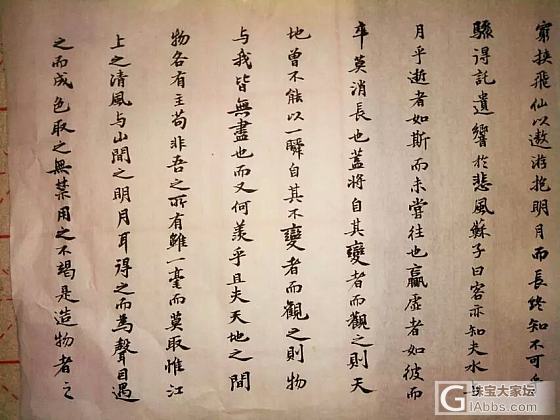 窮挾飛仙以遨游抱明月而長終知不可乎
驟得託遺響於悲風蘇子曰客亦知夫水與
月乎逝者如斯而未嘗往也贏虛者如彼而
卒莫消長也蓋將自其變者而觀之則天
地曾不能以一瞬自其不變者而觀之則物
与我皆無盡也而又何羨乎且夫天地之間
物各有主苟非吾之所有雖一毫而莫取惟江
上之清風与山間之明月耳得之而為聲目遇
之而成色取之無禁用之不竭是造物者之
珠宝大家坛
GIAbbs.com